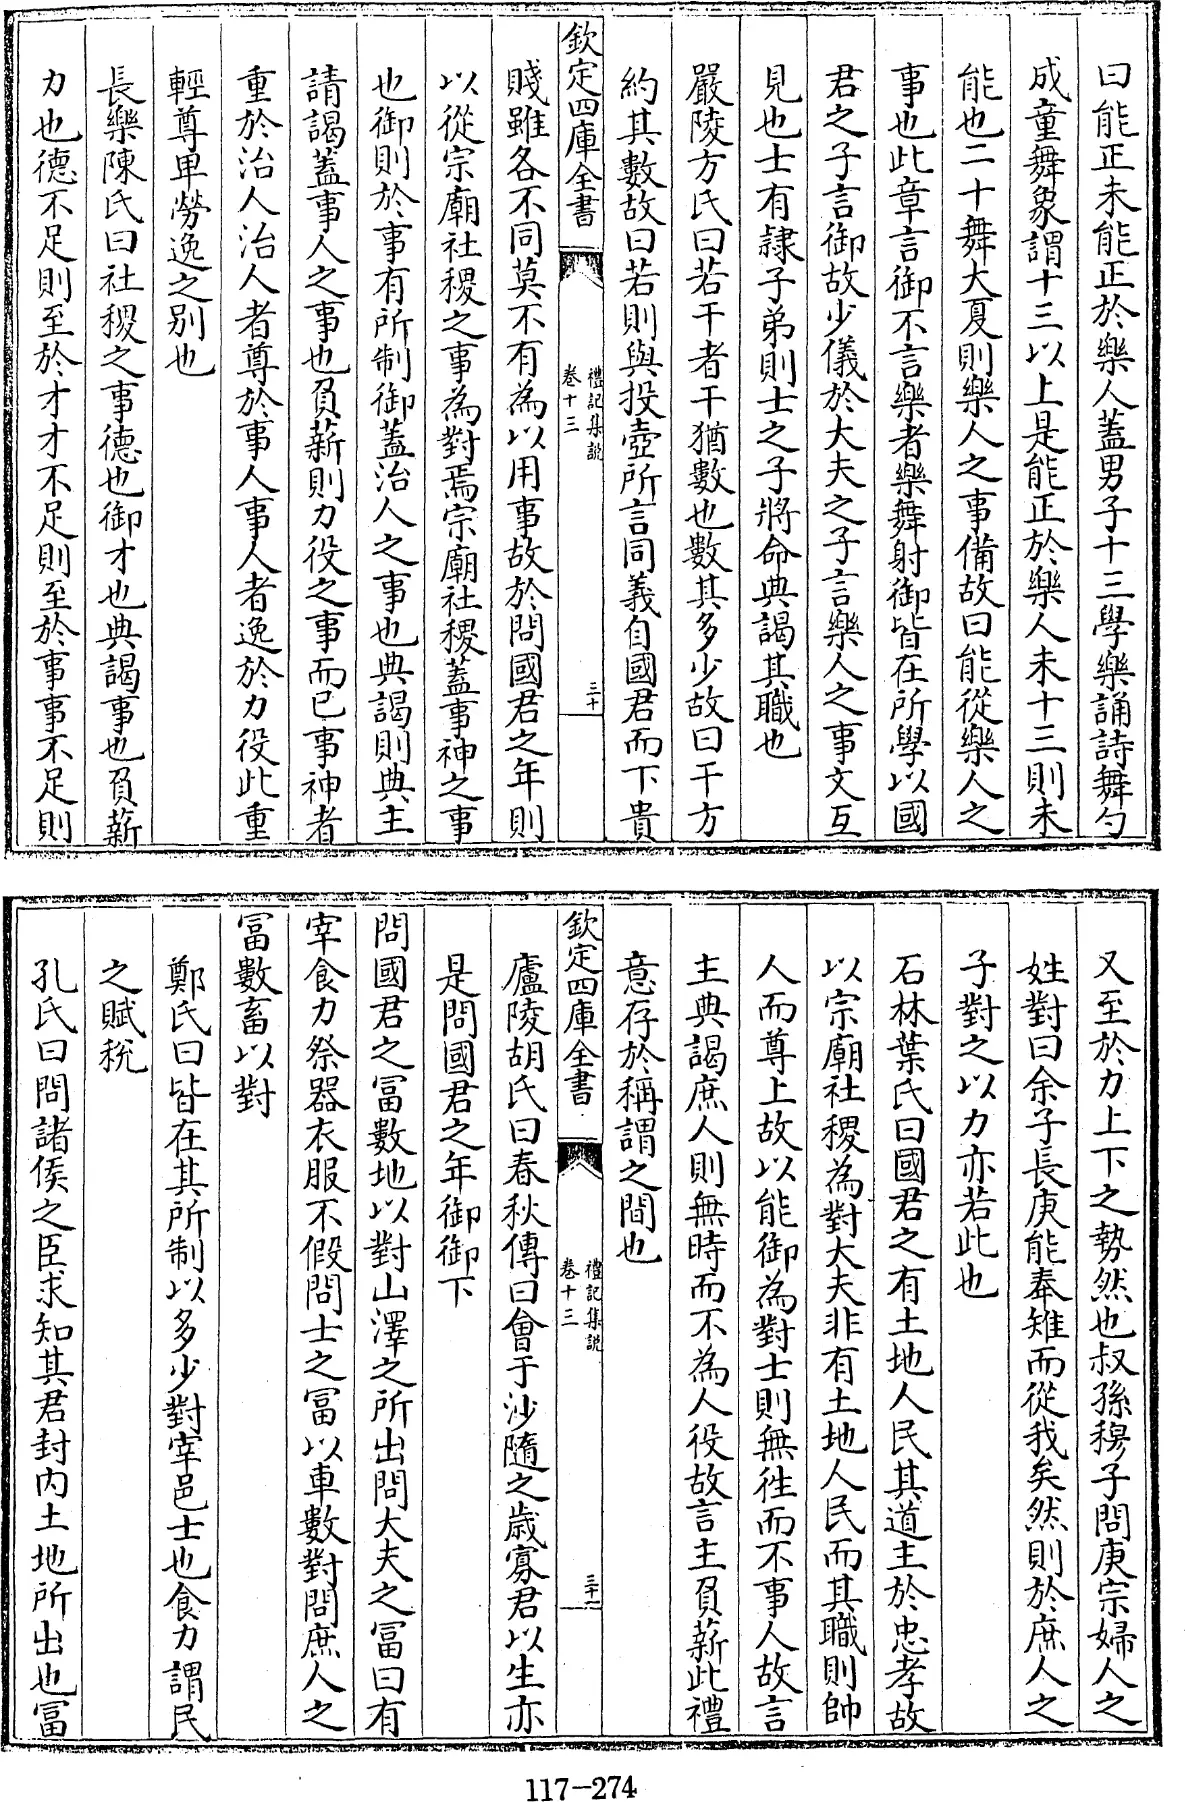 曰能正未能正於樂人蓋男子十三學樂誦詩舞勺
成童舞象謂十三以上是能正於樂人未十三則未
能也二十舞大夏則樂人之事備故曰能從樂人之
事也此章言御不言樂者樂舞射御皆在所學以國
君之子言御故少儀於大夫之子言樂人之事文互
見也士有隷子弟則士之子將命典謁其職也
嚴陵方氏曰若干者干猶數也數其多少故曰干方
約其數故曰若則與投壺所言同義自國君而下貴
欽定四庫全書
禮記集說
卷十三
三十
賤雖各不同莫不有為以用事故於問國君之年則
以從宗廟社稷之事為對焉宗廟社稷蓋事神之事
也御則於事有所制御蓋治人之事也典謁則典主
請謁蓋事人之事也負薪則力役之事而已事神者
重於治人治人者尊於事人事人者逸於力役此重
輕尊卑勞逸之別也
長樂陳氏曰社稷之事德也御才也典謁事也負薪
力也德不足則至於才才不足則至於事事不足則
又至於力上下之勢然也叔孫穆子問庚宗婦人之
姓對曰余子長庚能奉雉而從我矣然則於庶人之
子對之以力亦若此也
石林葉氏曰國君之有土地人民其道主於忠孝故
以宗廟社稷為對大夫非有土地人民而其職則帥
人而尊上故以能御為對士則無徃而不事人故言
主典謁庶人則無時而不為人役故言主負薪此禮
意存於稱謂之間也
欽定四庫全書
禮記集說
卷十三
三十一
廬陵胡氏曰春秋傳曰會于沙隨之歲寡君以生亦
是問國君之年御御下
問國君之冨數地以對山澤之所出問大夫之冨曰有
宰食力祭器衣服不假問士之冨以車數對問庶人之
冨數畜以對
鄭氏曰皆在其所制以多少對宰邑士也食力謂民
之賦稅
孔氏曰問諸侯之臣求知其君封内土地所出也冨
117-274